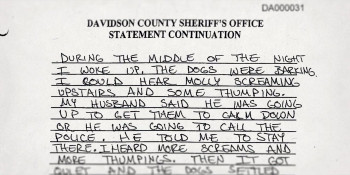 DA000031
DAVIDSON COUNTY SHERIFF'S OFFICE
STATEMENT CONTINUATION
DURING THE MIDDLE OF THE NIGHT
I WOKE UP. THE DOGS WERE BARKING.
I COULD HEAR MOLLY SCREAMING
UPSTAIRS AND SOME THUMPING.
MY HUSBAND SAID HE WAS GOING
UP TO GET THEM TO CALM DOWN
OR HE WAS GOING TO CALL THE
POLICE. HE TOLD ME TO STAY
THERE. I HEARD MORE SCREAMS AND
MORE THUMPINGS. THEN IT GOT
QUIET AND THE DOGS SETTLED